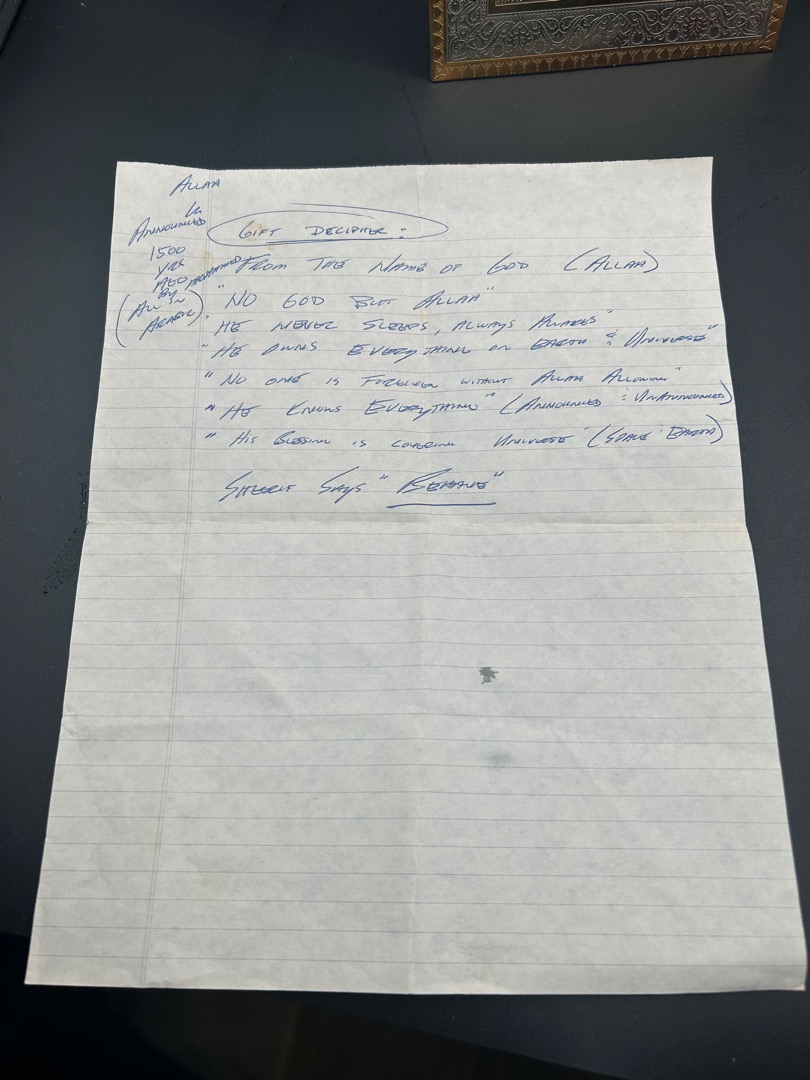 ALLAH
IS
ANNOUNCED
1500
YRS
AGO
BY MOHAMMED
(ALL IN
ARABIC)
GIFT DECIPHER:
"FROM THE NAME OF GOD (ALLAH)
"NO GOD BUT ALLAH"
"HE NEVER SLEEPS, ALWAYS AWAKES"
"HE OWNS EVERYTHING ON EARTH & UNIVERSE"
"NO ONE IS FORGIVEN WITHOUT ALLAH ALLOWING"
"HE KNOWS EVERYTHING" (ANNOUNCED & UNANNOUNCED)
"HIS BLESSING IS COVERING UNIVERSE (SPACE & EARTH)
SAYS "BEHAVE"